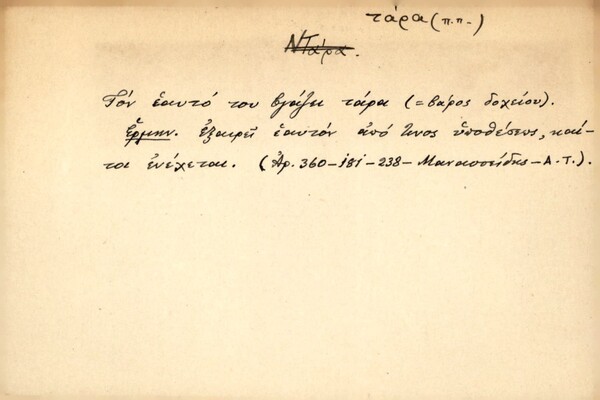 τάρα (π.π.)
Ντάρα.
Τὸν ἑαυτό του βγάζει τάρα (= βάρος δοχείου).
Ἑρμην. Ἐξαιρεῖ ἑαυτὸν ἀπό τινος ὑποθέσεως, καί-
τοι ἐνέχεται. (Ἀρ. 360-181-238- Μανασσείδης - Α.Τ.).